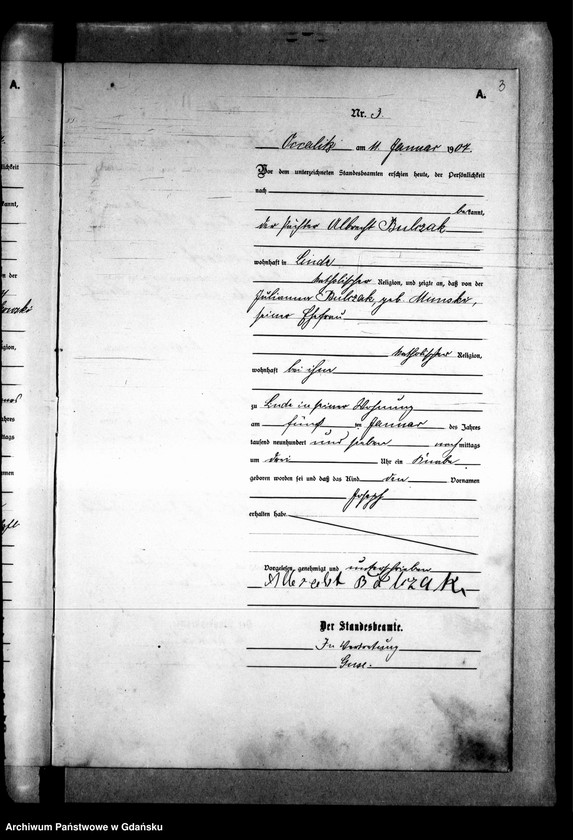 A.
3
A.
Nr. 3.
am 11. Januar 1907.
Vor dem unterzeichneten Standesbeamten erschien heute, der Persönlichkeit
nach
bekannt,
der Pächter Albrecht Bulczak
wohnhaft in Linde
katholischer Religion, und zeigte an, daß von der
Julianna Bulczak, geb. Munski,
seiner Ehefrau
katholischer Religion,
wohnhaft bei ihm
zu Linde in seiner Wohnung
am fünften Januar des Jahres
tausend neunhundert und sieben nachmittags
um drei Uhr ein Knabe
geboren worden sei und daß das Kind den Vornamen
Joseph
erhalten habe
Vorgelesen, genehmigt und unterschrieben
Albrecht Bulczak
Der Standesbeamte.
In Vertretung
Archiwum Państwowe w Gdańsku